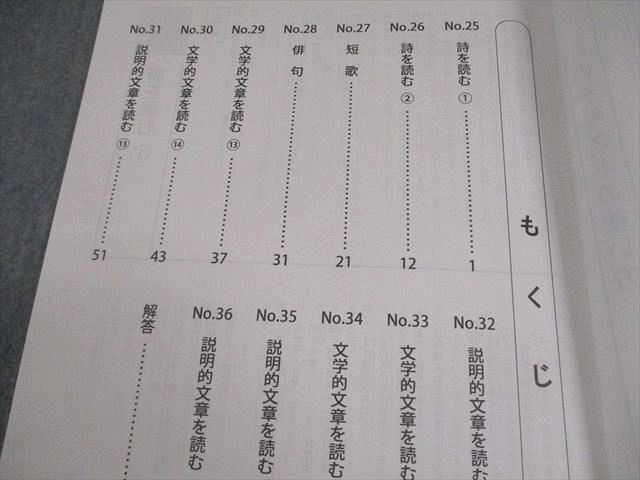 もくじ
No.25 詩を読む ① 1
No.26 詩を読む ② 12
No.27 短歌 21
No.28 俳句 31
No.29 文学的文章を読む ⑬ 37
No.30 文学的文章を読む ⑭ 43
No.31 説明的文章を読む ⑬ 51
No.32 説明的文章を読む
No.33 文学的文章を読む
No.34 文学的文章を読む
No.35 説明的文章を読む
No.36 説明的文章を読む
解答